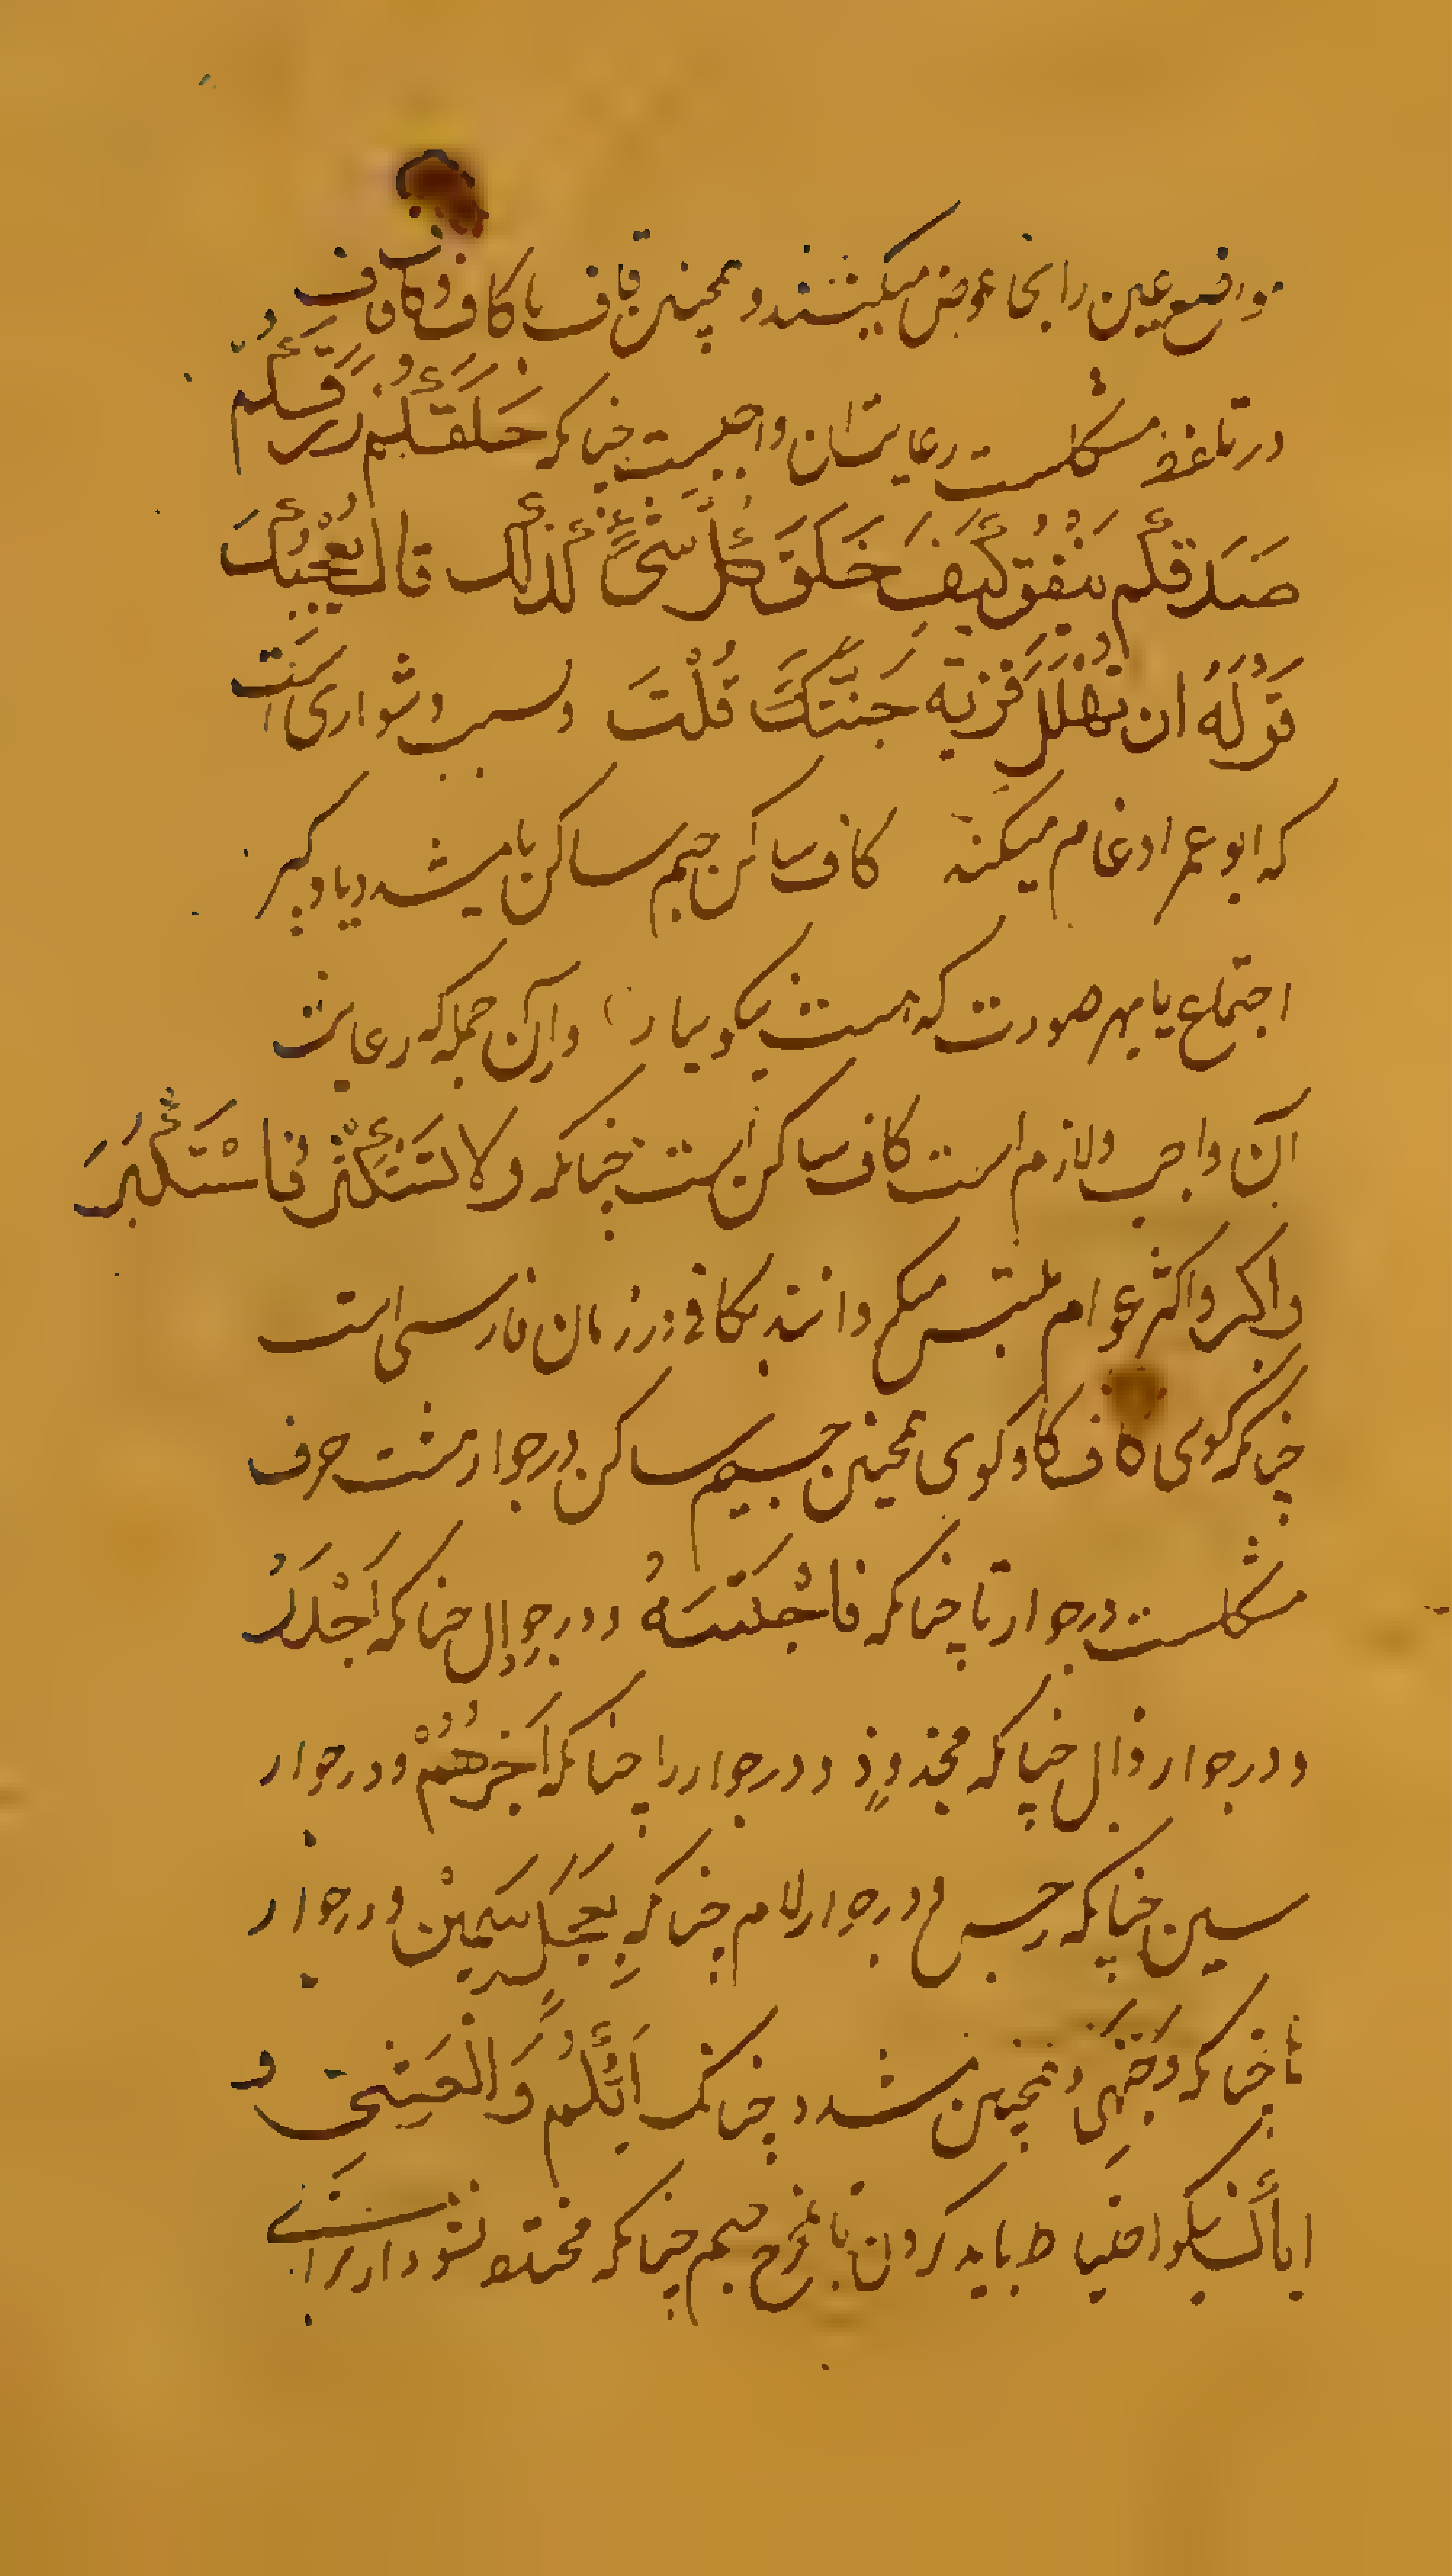 مواضع عین را بخا عوض میکنند و همچنین قاف با کاف و کاف
در تلفظ مشکلست رعایتشان واجبست چنانکه خَلَقَكُم رَزَقَكُم
صَدَقَكُم يُنْفِقُ كَيْفَ خَلَقَ كُلَّ شَیْءٍ كَذٰلِكَ قال يُعْجِبُكَ
قَوْلُهُ ان نُهْلِكَ قَرْيَة جَنَّتَكَ قُلْتَ وبسبب دشواری است
که ابو عمر ادغام میکند کاف ساکن جیم ساکن یا مشدد یا دیگر
اجتماع یا بهر صورت که هست نیکو وازان جمله که رعایت
آن واجب ولازم است کاف ساکن است چنانکه ولا تَسْتَكْثِرُ فَاسْتَكْبَرَ
واکبر واکثر عوام ملتبس میکردانند بکافی در زمان فارسی است
چنانکه کوی کاف کاو کوی همچنین جیم ساکن در جوار هشت حرف
مشکلست در جوار تا چنانکه فَاجْتَبَيهُ ودر جوار دال چنانکه اَجْدَرُ
ودر جوار ذال چنانکه مجذوذ ودر جوار را چنانکه اَجْرَهُمْ ودر جوار
سین چنانکه رجس ودر جوار لام چنانکه بِعِجْلٍ سَمِيْن ودر جوار
ها چنانکه وَجْهِیَ وهمچنین مشدد چنانکه
ایشان نیکو احتیاط باید کردن تا مخرج جیم چنانکه مختلط نشود